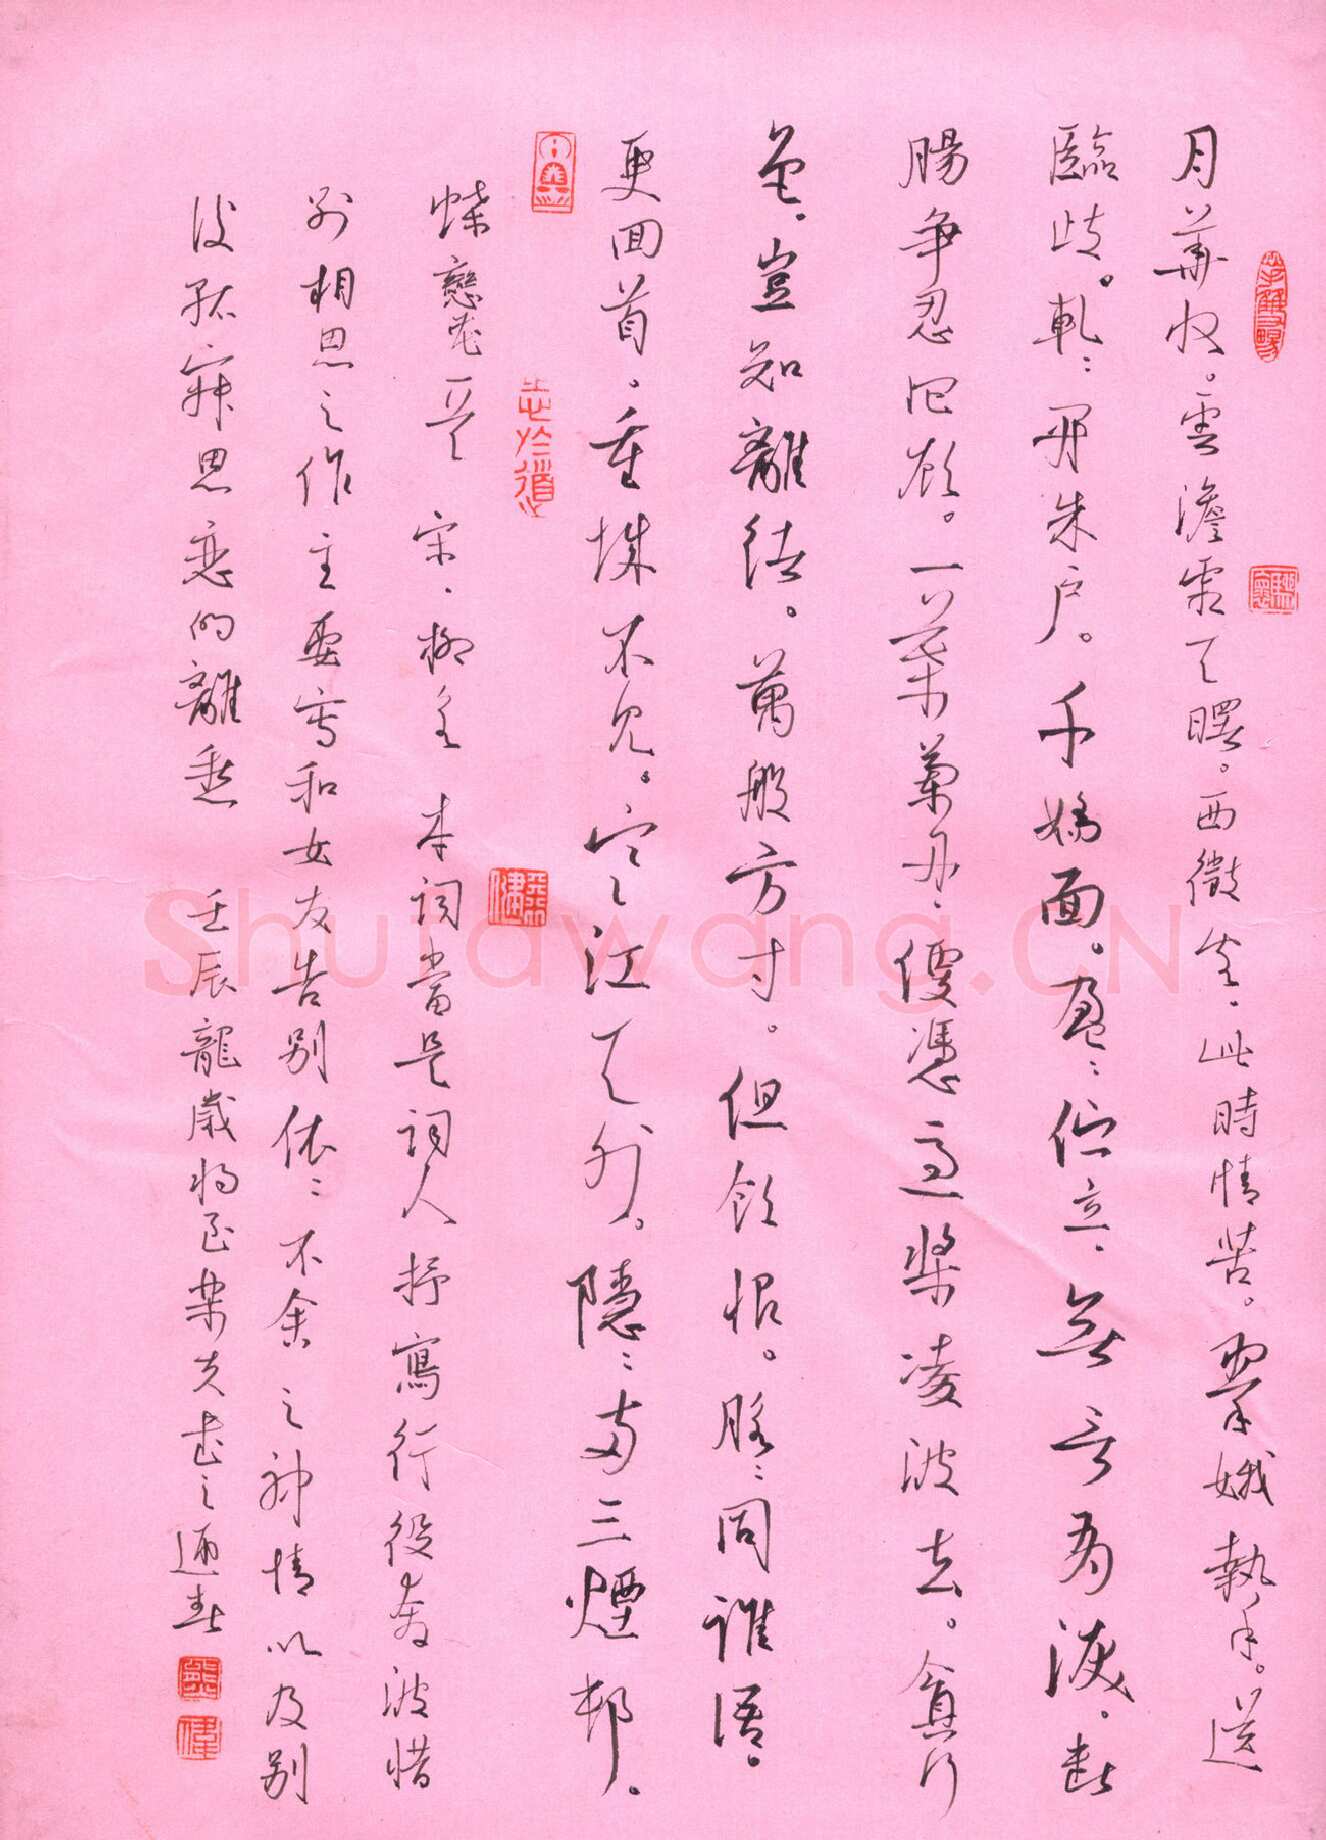 月華收。雲澹霜天曙。西徵客、此時情苦。翠娥執手。送
臨歧。軋〻開朱户。千嬌面。盈〻佇立、無言有淚、斷
腸爭忍回顧。一葉蘭舟、便憑急槳凌波去。貪行
色、豈知離緒。萬般方寸。但飲恨。脈〻同誰語。
更回首。重城不見。寒江天外。隱〻兩三煙樹。
志於道
蝶戀花 宋、柳永 本詞當是詞人抒寫行役奔波惜
别相思之作主要寫和女友告别依〻不舍之神情以及别
後孤寂思恋的離愁 壬辰龍歲將至
Shufawang.CN